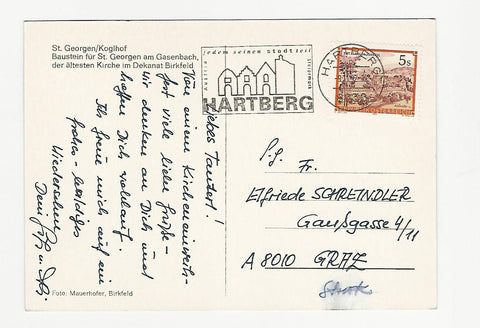 St. Georgen/Koglhof
Baustein für St. Georgen am Gasenbach,
der ältesten Kirche im Dekanat Birkfeld
jedem seinen stadtteil
Austria
Steiermark
HARTBERG
HARTBERG
5s
REPUBLIK ÖSTERREICH
Liebes Tantert!
Von einem Kircheneinweih-
fest viele liebe Grüße -
wir denken an Dich und
hoffen Dich wohlauf.
Ich freue mich auf ein
frohes - baldiges
Wiedersehen
Dein
P. g. Fr.
Elfriede SCHREINDLER
Gaußgasse 4/11
A 8010 GRAZ
Foto: Mauerhofer, Birkfeld